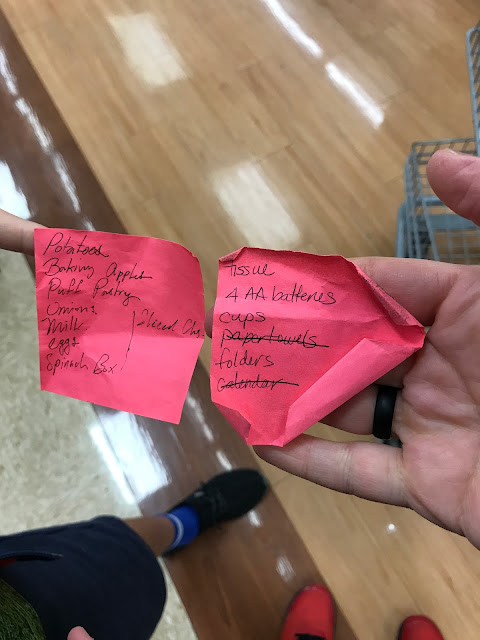 Potatoes
Baking Apples
Puff Pastry
Onions
Milk
eggs
Spinach Box
Sliced
tissue
4 AA batteries
cups
papertowels
folders
calendar